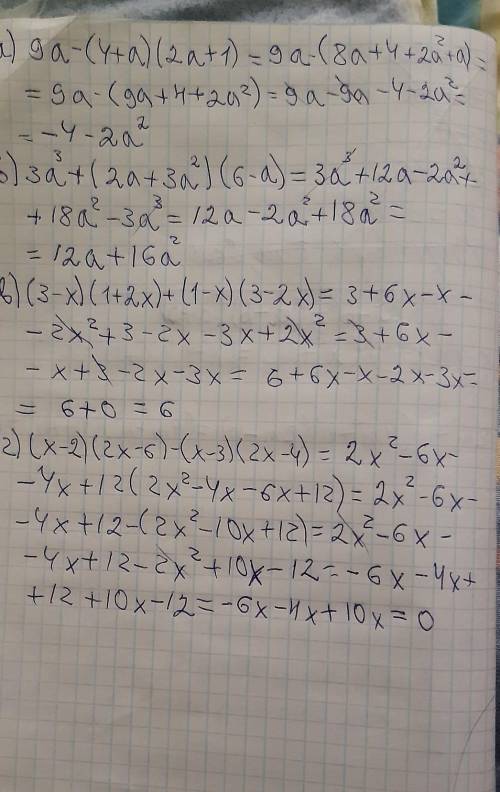 а) 9a-(4+a)(2a+1)=9a-(8a+4+2a²+a)=
=9a-(9a+4+2a²)=9a-9a-4-2a²=
=-4-2a²
б) 3a³+(2a+3a²)(6-a)=3a³+12a-2a²+
+18a²-3a³=12a-2a²+18a²=
=12a+16a²
в) (3-x)(1+2x)+(1-x)(3-2x)=3+6x-x-
-2x²+3-2x-3x+2x²=3+6x-
-x+3-2x-3x=6+6x-x-2x-3x=
=6+0=6
г) (x-2)(2x-6)-(x-3)(2x-4)=2x²-6x-
-4x+12(2x²-4x-6x+12)=2x²-6x-
-4x+12-(2x²-10x+12)=2x²-6x-
-4x+12-2x²+10x-12=-6x-4x+
+12+10x-12=-6x-4x+10x=0